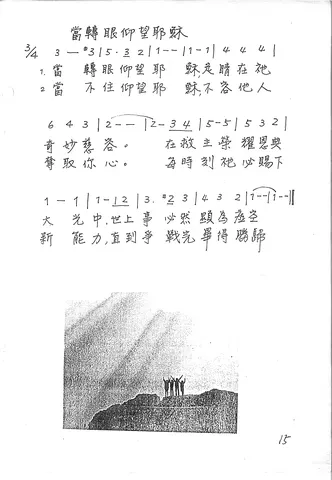 當轉眼仰望耶穌
3/4 3 — #3 | 5 · 3 2 | 1 - - | 1 - 1 | 4 4 4 |
1. 當 轉眼仰望耶 穌,定睛在祂
2 當 不住仰望耶 穌,不容他人
6 4 3 | 2 - - | 2 - 3 4 | 5 - 5 | 5 3 2 |
奇妙慈容。 在救主榮耀恩典
奪取你心。 每時刻祂必賜下
1 - 1 | 1 - 1 2 | 3. #2 3 | 4 3 2 | 1 - - | 1 - - ||
大 光中,世上事 必然顯為虛空
新 能力,直到爭 戰完畢得勝歸
15